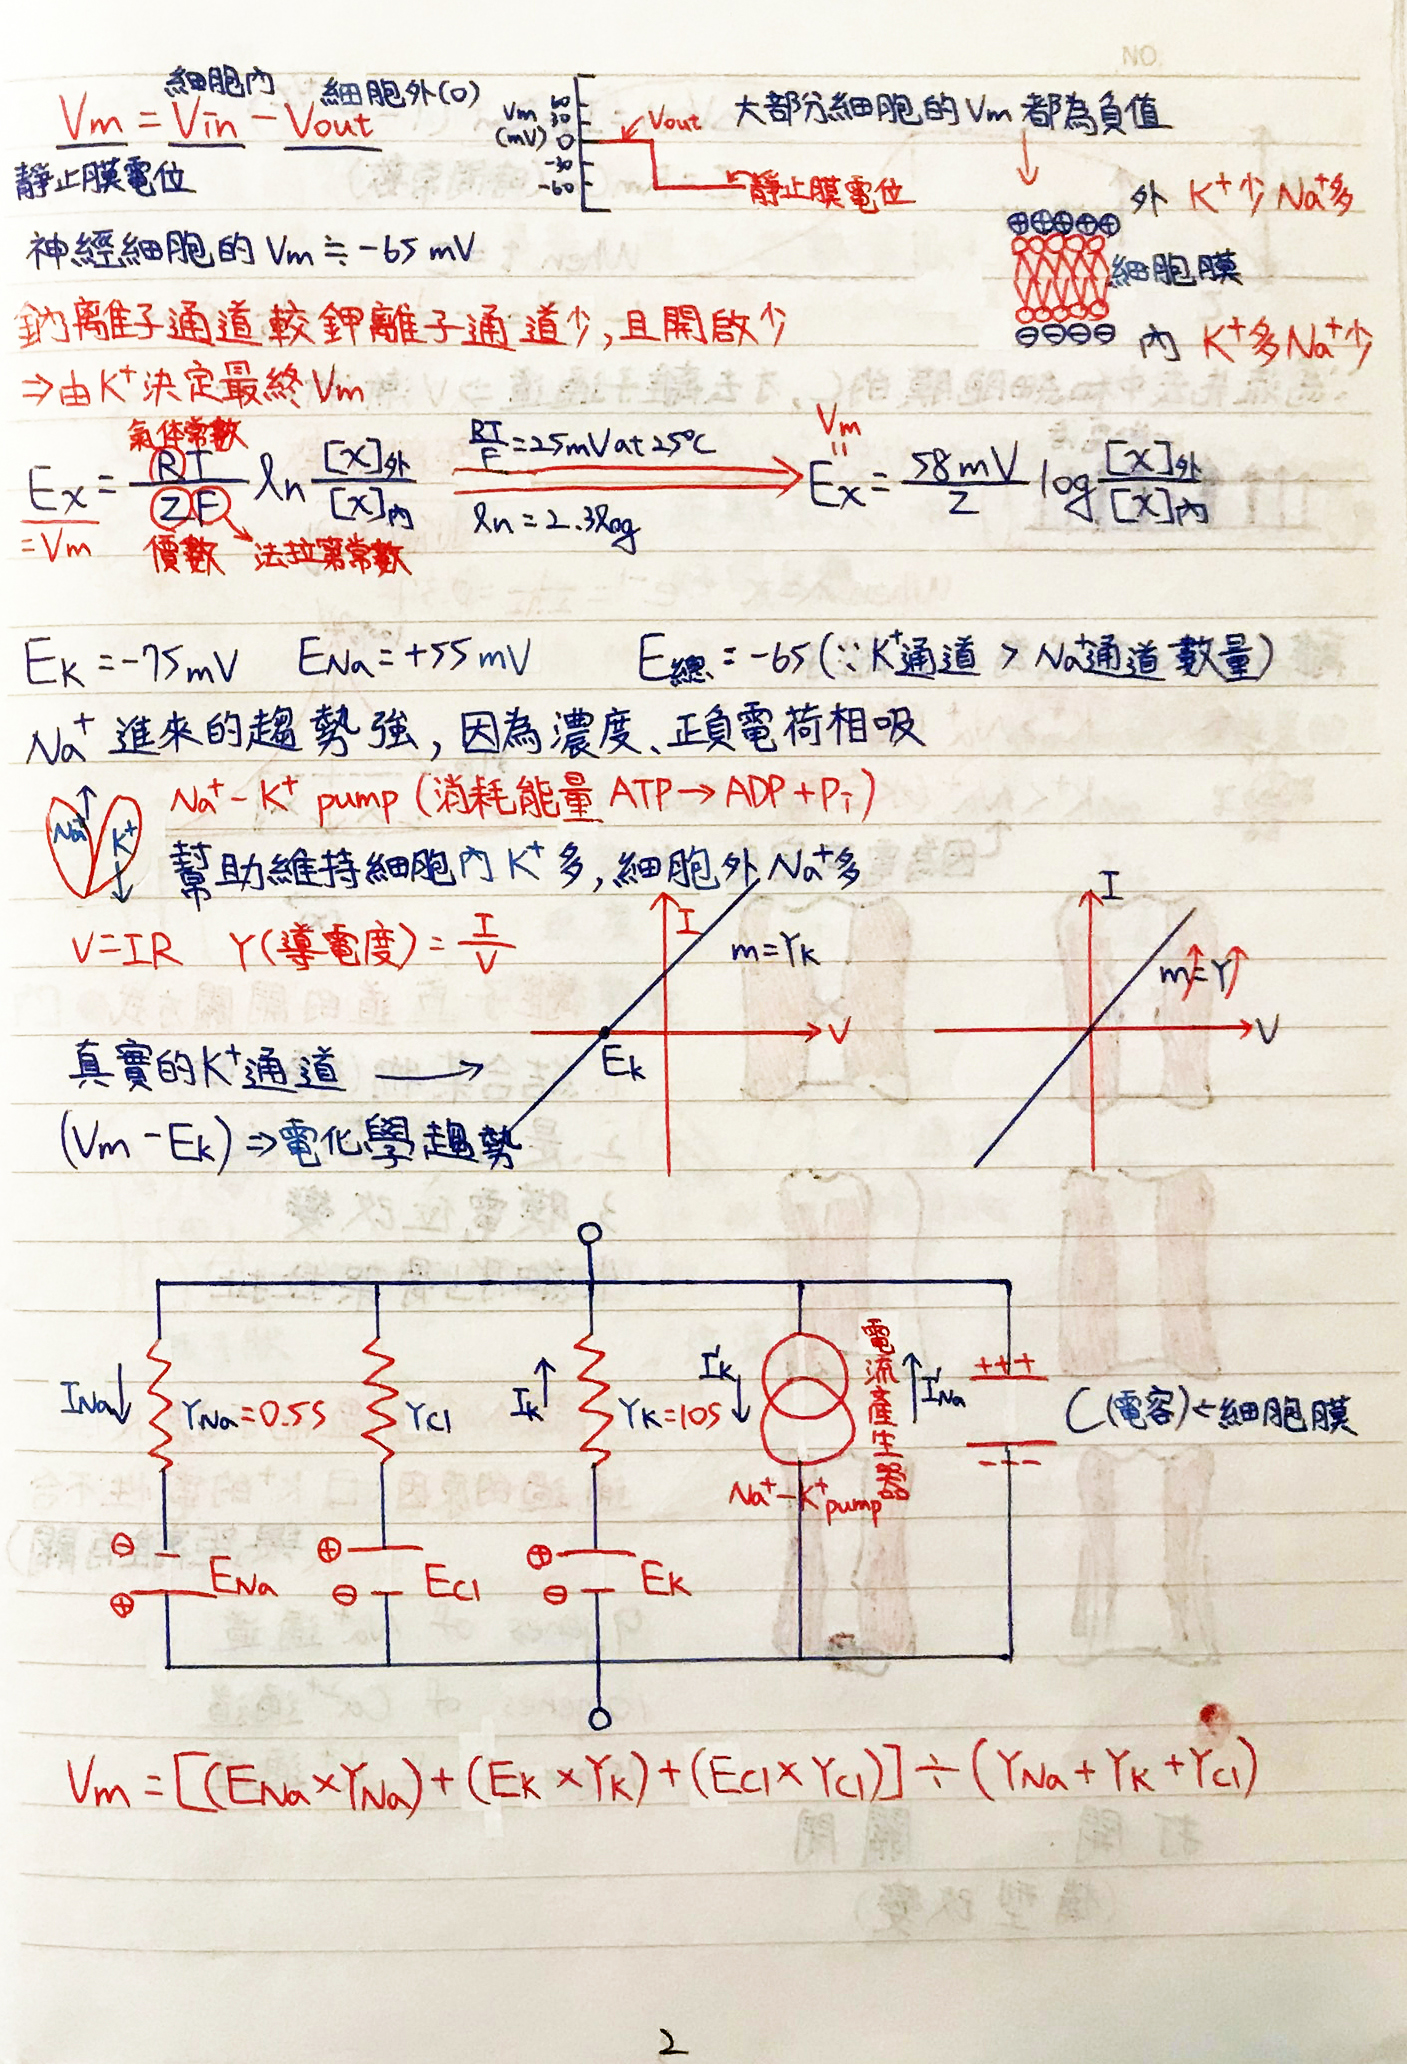 細胞內 細胞外(0)
Vm = Vin - Vout
靜止膜電位
Vm (mV) 60 30 0 -30 -60
Vout
靜止膜電位
大部分細胞的 Vm 都為負值
外 K⁺少 Na⁺多
⊕⊕⊕⊕⊕
細胞膜
⊖⊖⊖⊖
內 K⁺多 Na⁺少
神經細胞的 Vm ≒ -65 mV
鈉離子通道較鉀離子通道少,且開啟少
⇒由K⁺決定最終Vm
氣体常數
Ex = RT/ZF ln [X]外/[X]內
= Vm
價數 法拉第常數
RT/F = 25mV at 25°C
ln = 2.3log
Vm
=
Ex = 58mV/Z log [X]外/[X]內
EK = -75mV ENa = +55mV E總 = -65 (∵K⁺通道 > Na⁺通道數量)
Na⁺進來的趨勢強,因為濃度、正負電荷相吸
Na⁺ K⁺
Na⁺-K⁺ pump (消耗能量 ATP→ADP+Pi)
幫助維持細胞內K⁺多,細胞外Na⁺多
V=IR γ(導電度)= I/V
I m=γK V EK
I m=γ V
真實的K⁺通道 →
(Vm-Ek)⇒電化學趨勢
INa↓ γNa=0.5S γCl IK↑ γK=10S I'K↓ 電流產生器 ↑I'Na +++ C(電容)←細胞膜
---
Na⁺-K⁺pump
⊖ ⊕ ENa ⊕ ⊖ ECl ⊕ ⊖ EK
Vm = [(ENa×γNa)+(EK×γK)+(ECl×γCl)]÷(γNa+γK+γCl)
2